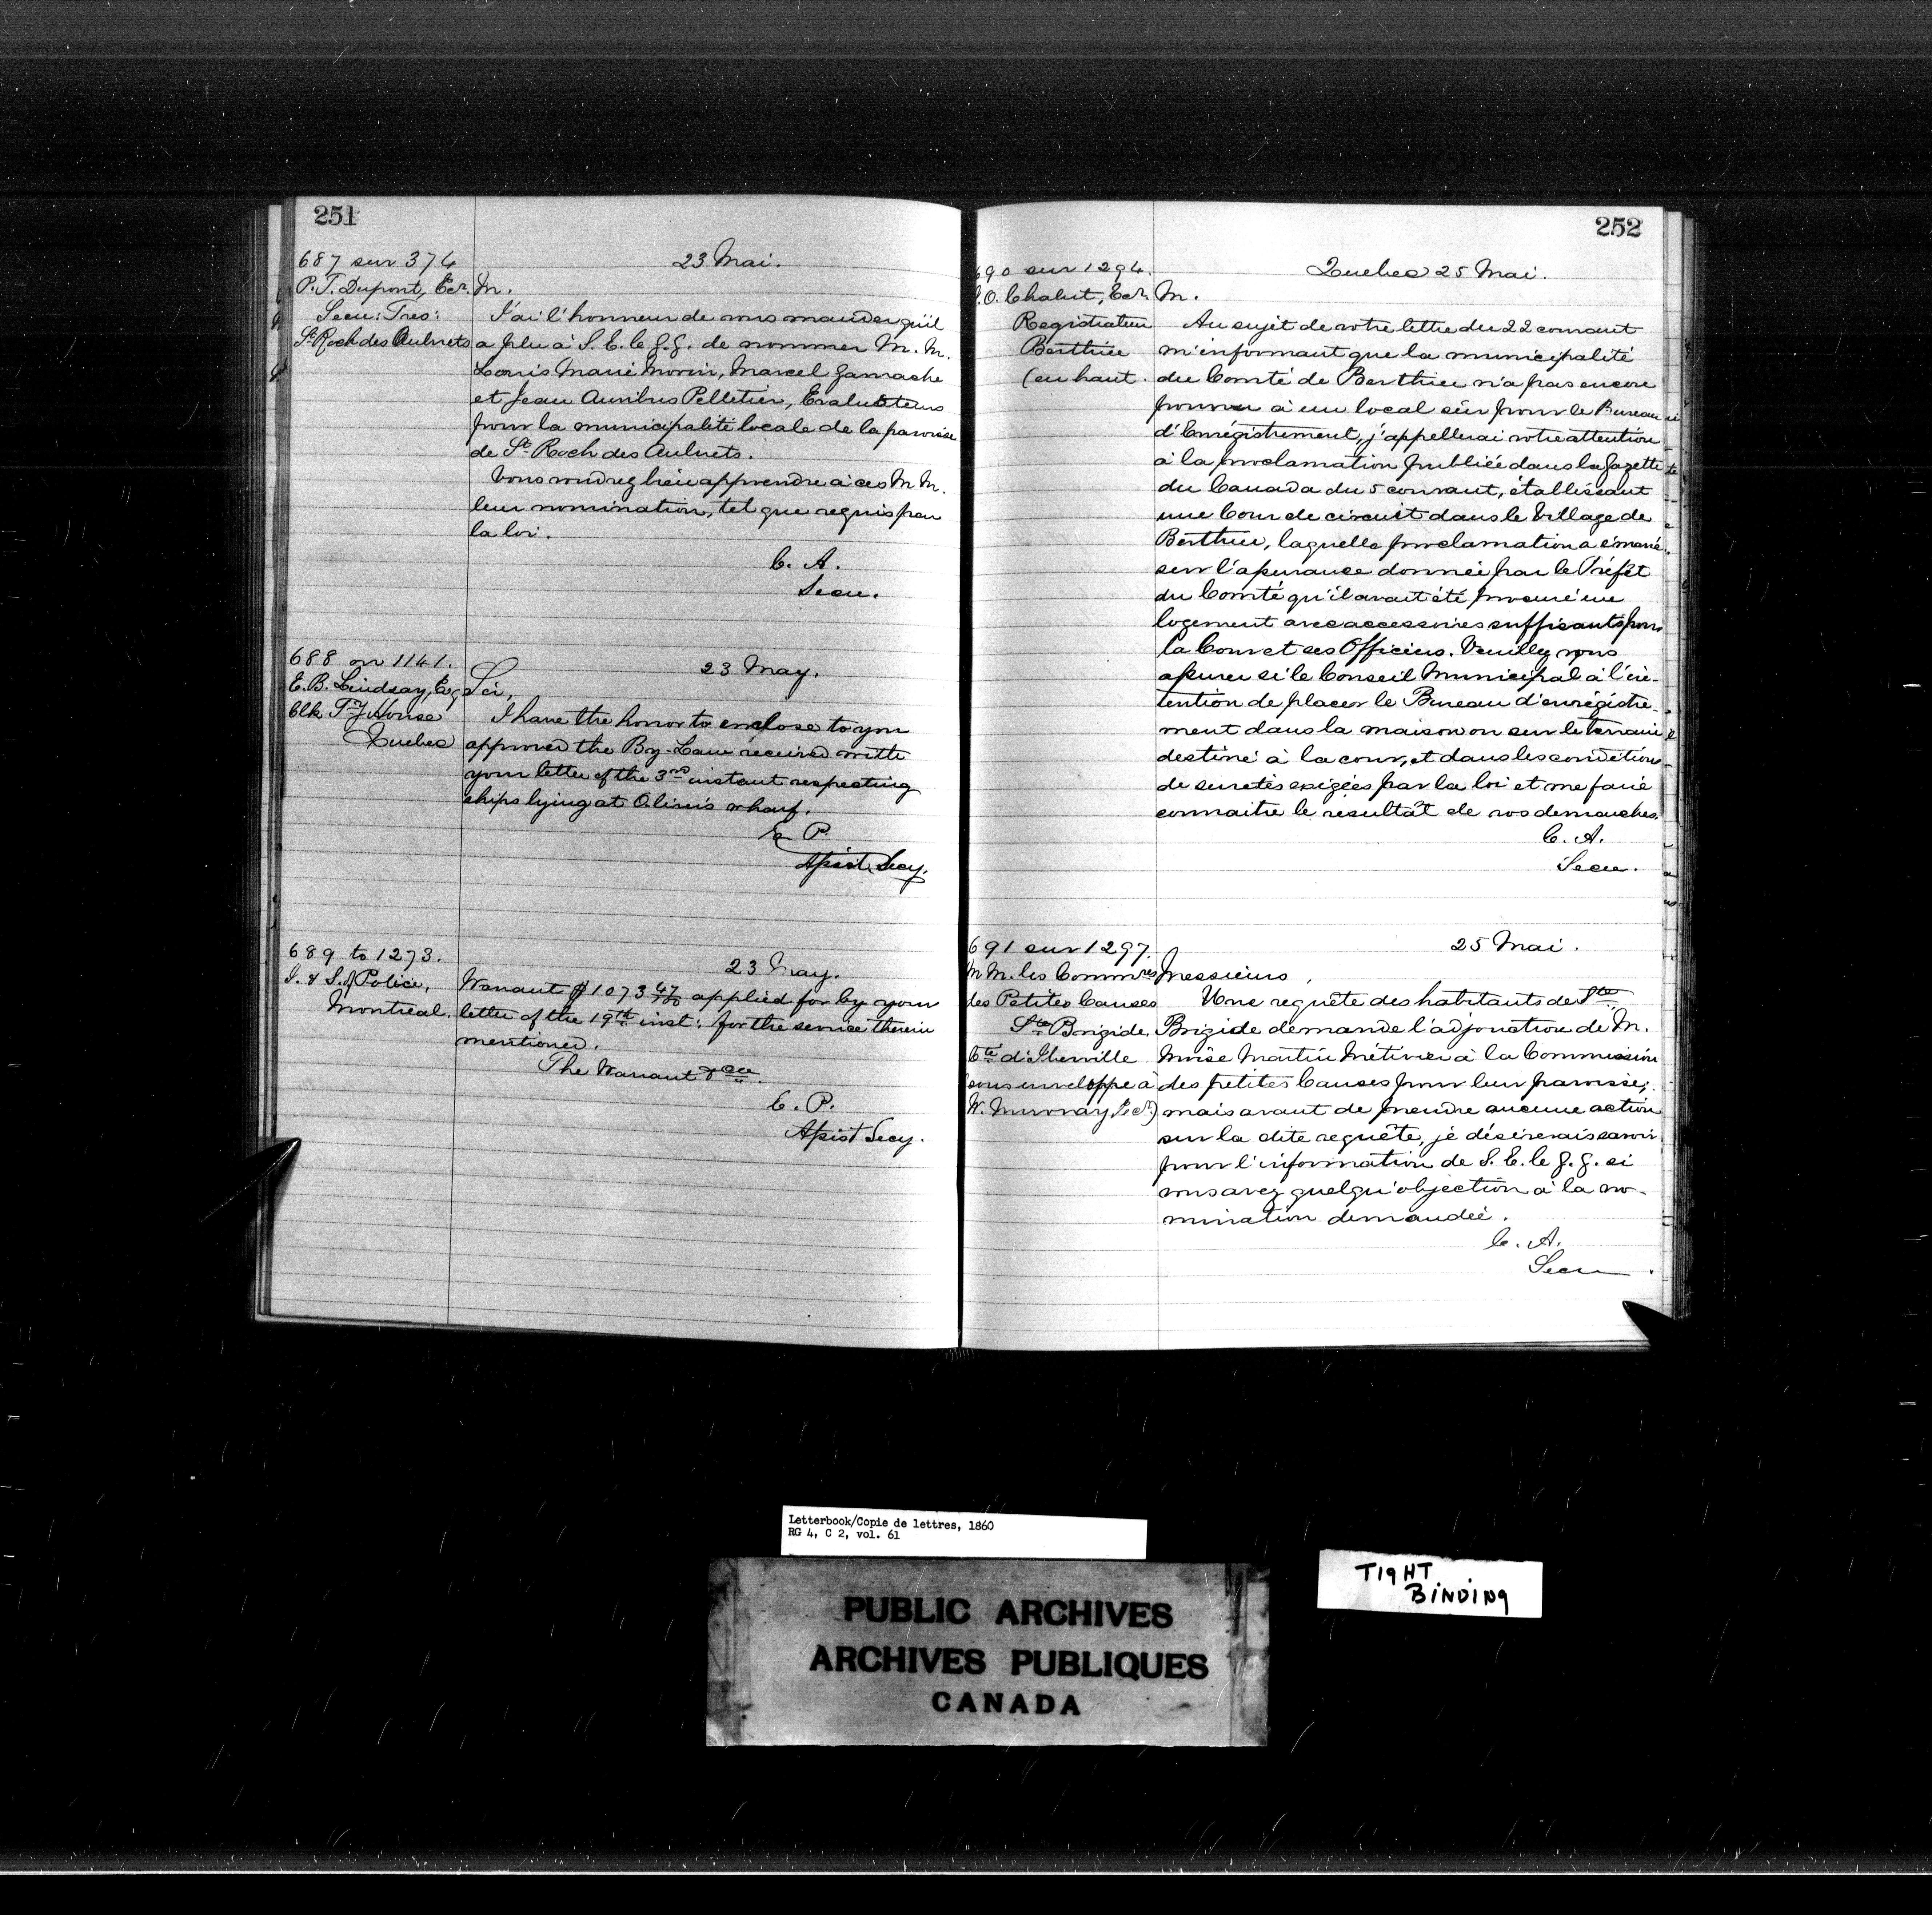 251
687 sur 374
P. T. Dupont, Ecr.
Secu: Tres:
St Roch des Aulnets
23 Mai.
M.
J'ai l'honneur de vous mander qu'il
a plu à S. E. le G. G. de nommer M. M.
Louis Marie Morin, Marcel Gamache
et Jean Pelletier, Evaluateurs
pour la municipalité locale de la paroisse
de St Roch des Aulnets.
Vous voudrez bien apprendre à ces M M.
leur nomination, tel que requis par
la loi.
C. A.
Secu.
688 on 1141.
E. B. Lindsay, Esq
Clk Ty House
Quebec
23 May.
Sir,
I have the honor to enclose to you
approved the By-Law received with
your letter of the 3rd instant respecting
ships lying at wharf.
E. P.
Assist. Secy.
689 to 1273.
I. & S. of Police,
Montreal.
23 May.
Warant $1073 47/100 applied for by your
letter of the 19th inst: for the service therein
mentioned.
The Warant &ca.
E. P.
Assist Secy.
252
690 sur 1294.
O. Chalut, Ecr.
Registrateur
Berthier
(en haut.
Quebec 25 Mai.
M.
Au sujet de votre lettre du 22 courant
m'informant que la municipalité
du Comté de Berthier n'a pas encore
pourvu à un local sûr pour le Bureau
d'Enrégistrement, j'appellerai votre attention
à la proclamation publiée dans la Gazette
du Canada du 5 courant, établissant
une Cour de circuit dans le Village de
Berthier, laquelle proclamation a émané
sur l'assurance donnée par le Préfet
du Comté qu'il avait été procuré un
logement avec accessoires suffisants pour
la Cour et ses Officiers. Veuillez vous
assurer si le Conseil Municipal à l'in-
tention de placer le Bureau d'enrégistre-
ment dans la maison ou sur le terrain
destiné à la cour, et dans les conditions
de suretés exigées par la loi et me faire
connaitre le résultat de vos demarches.
C. A.
Secu.
691 sur 1297.
M M. les Commres
des Petites Causes
Ste Brigide,
Cté d'Iberville
(sous enveloppe à
W. Murray, Ecr.)
25 Mai.
Messieurs,
Une requête des habitants de Ste
Brigide demande l'adjonction de M.
Moïse Martin Métivier à la Commission
des petites Causes pour leur paroisse;
mais avant de prendre aucune action
sur la dite requête, je désirerais savoir
pour l'information de S. E. le G. G. si
vous avez quelqu'objection à la no-
mination demandée.
C. A.
Secu.
Letterbook/Copie de lettres, 1860
RG 4, C 2, vol. 61
PUBLIC ARCHIVES
ARCHIVES PUBLIQUES
CANADA
TIGHT
BINDING